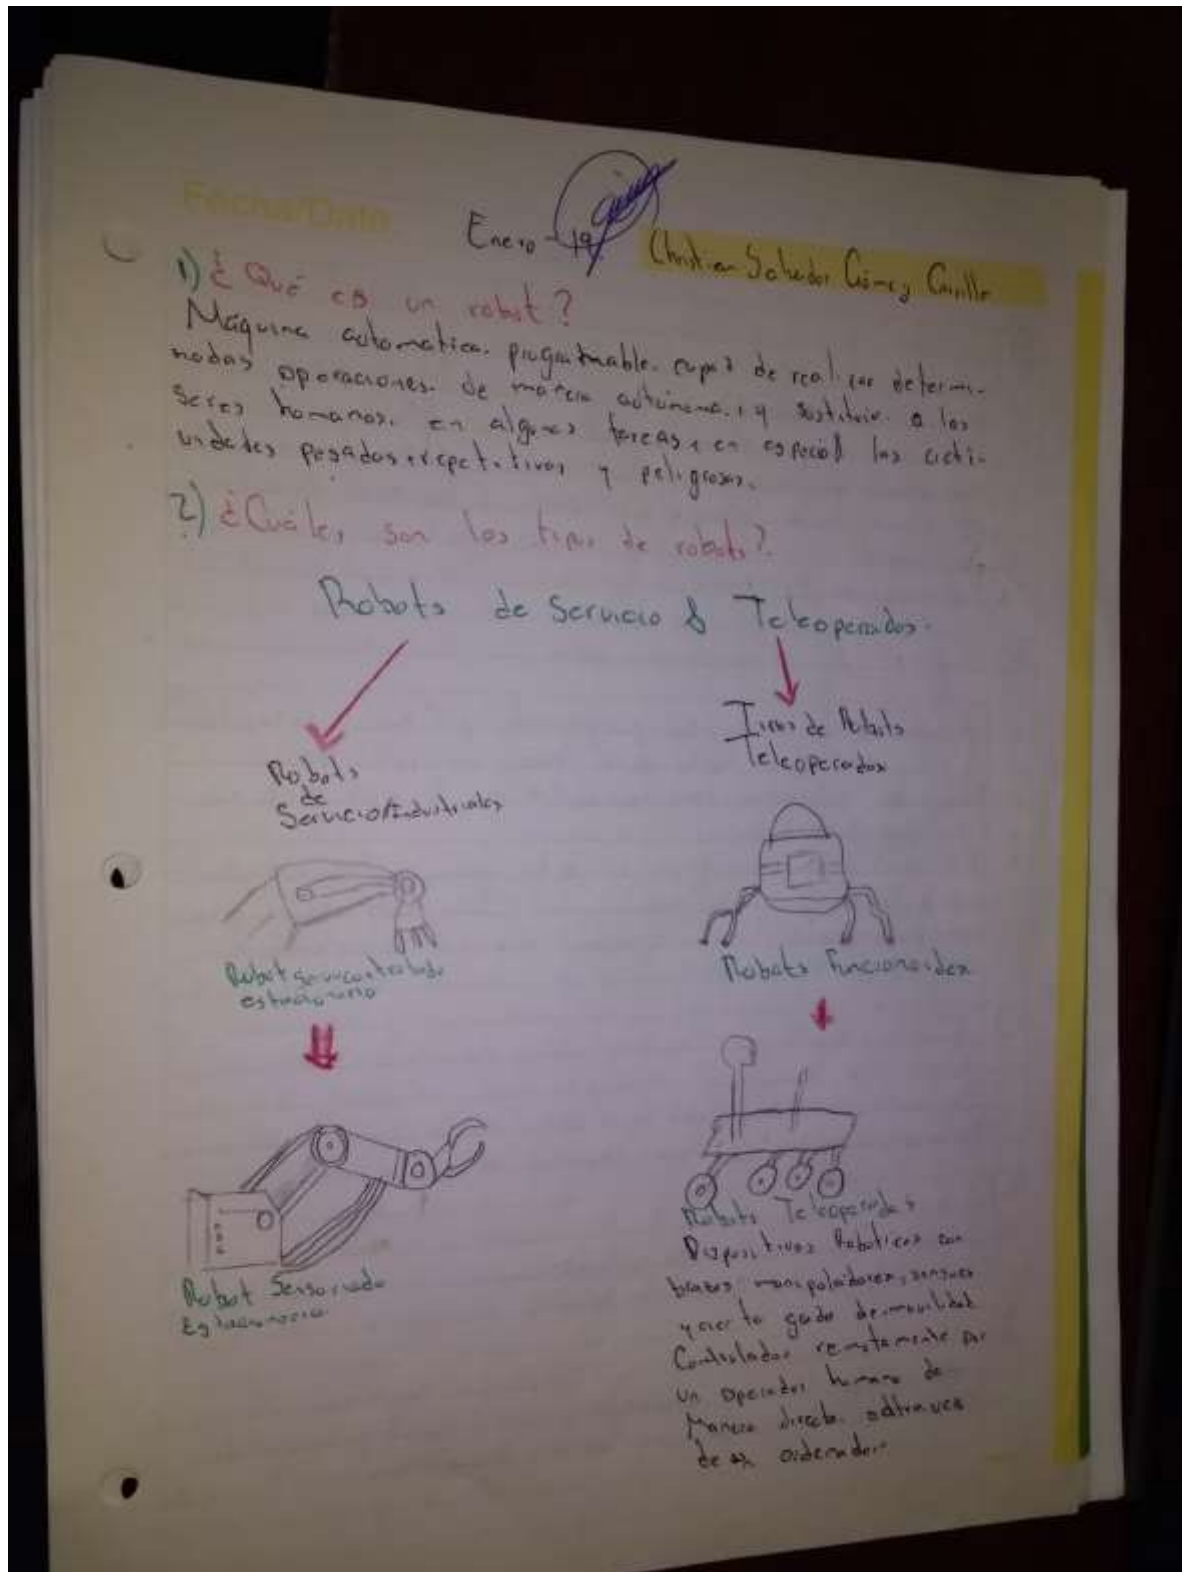 Fecha/Date
Enero - 19
Christian Salvador Gómez
1) ¿Qué es un robot?
Máquina automatica programable capaz de realizar determi-
nadas operaciones de manera autónoma y sustituir a los
seres humanos en algunas tareas, en especial las acti-
vidades pesadas, repetitivas y peligrosas.
2) ¿Cuáles son los tipos de robots?
Robots de Servicio & Teleoperados.
Robots
de
Servicio/Industriales
Tipos de Robots
Teleoperados
Robot servocontrolado
estacionario
Robots Funcionoides
Robot Sensorizado
Estacionario
Robots Teleoperados
Dispositivos Roboticos con
brazos manipuladores, sensores
y cierto grado de movilidad
Controlados remotamente por
un operador humano de
Manera directa o atraves
de un ordenador.